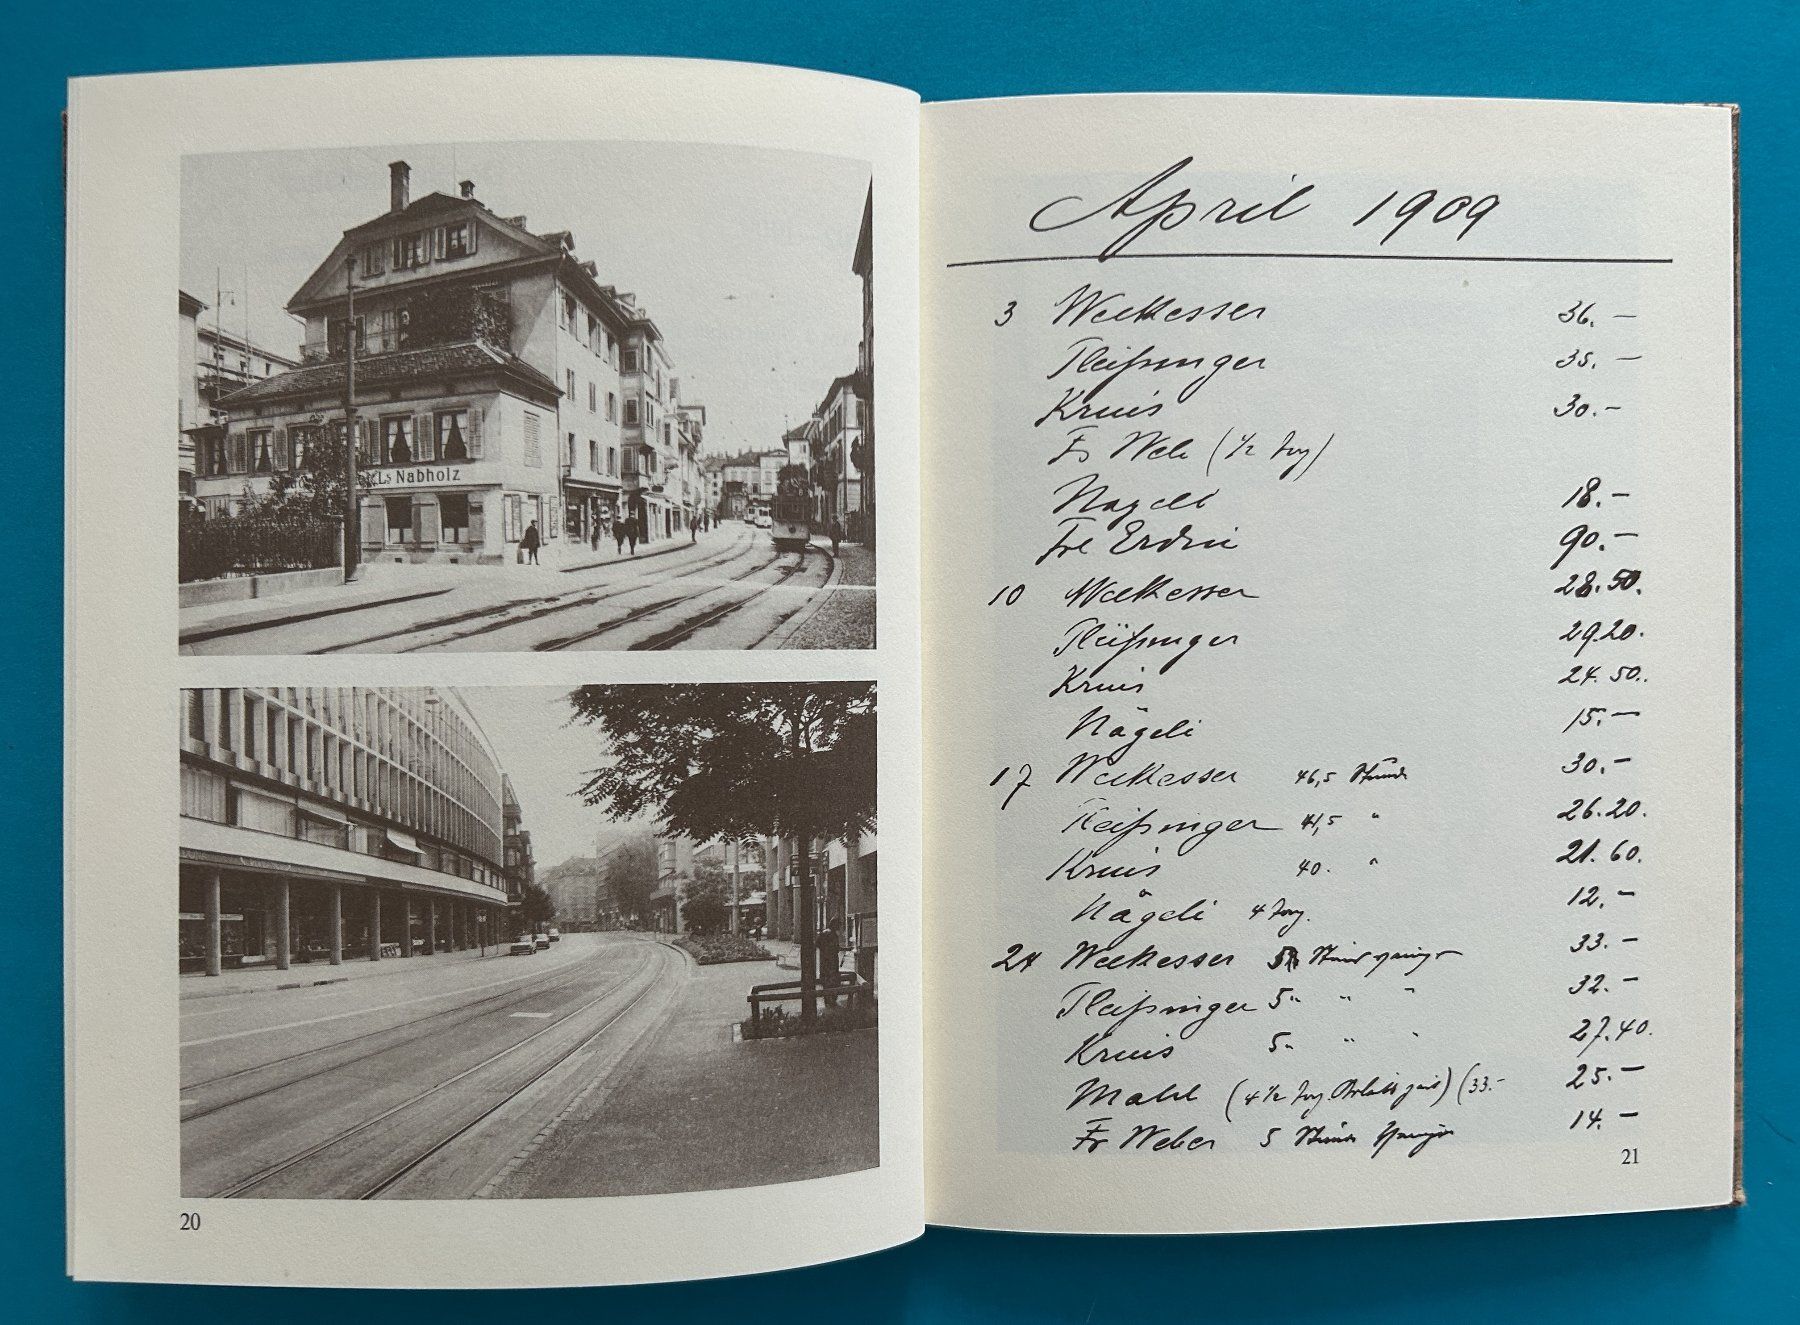 Ls Nabholz
20
April 1909
3 Weckesser 36.-
Fleißinger 35.-
Kruis 30.-
Fr Web (1/2 Tag)
Nageli 18.-
Frl 90.-
10 Weckesser 28.50.
Fleißinger 29.20.
Kruis 24.50..
Nägeli 15.-
17 Weckesser 46,5 Stund 30.-
Fleißinger 41,5 " 26.20.
Kruis 40. " 21.60.
Nägeli 4 Tag. 12.-
24 Weckesser 33.-
Fleißinger 5 " " " 32.-
Kruis 5 " " " 27.40.
Mahl (4 1/2 Tag (33.- 25.-
Fr Weber 5 14.-
21